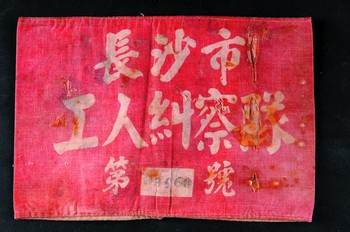 長沙市
工人糾察隊
第 號